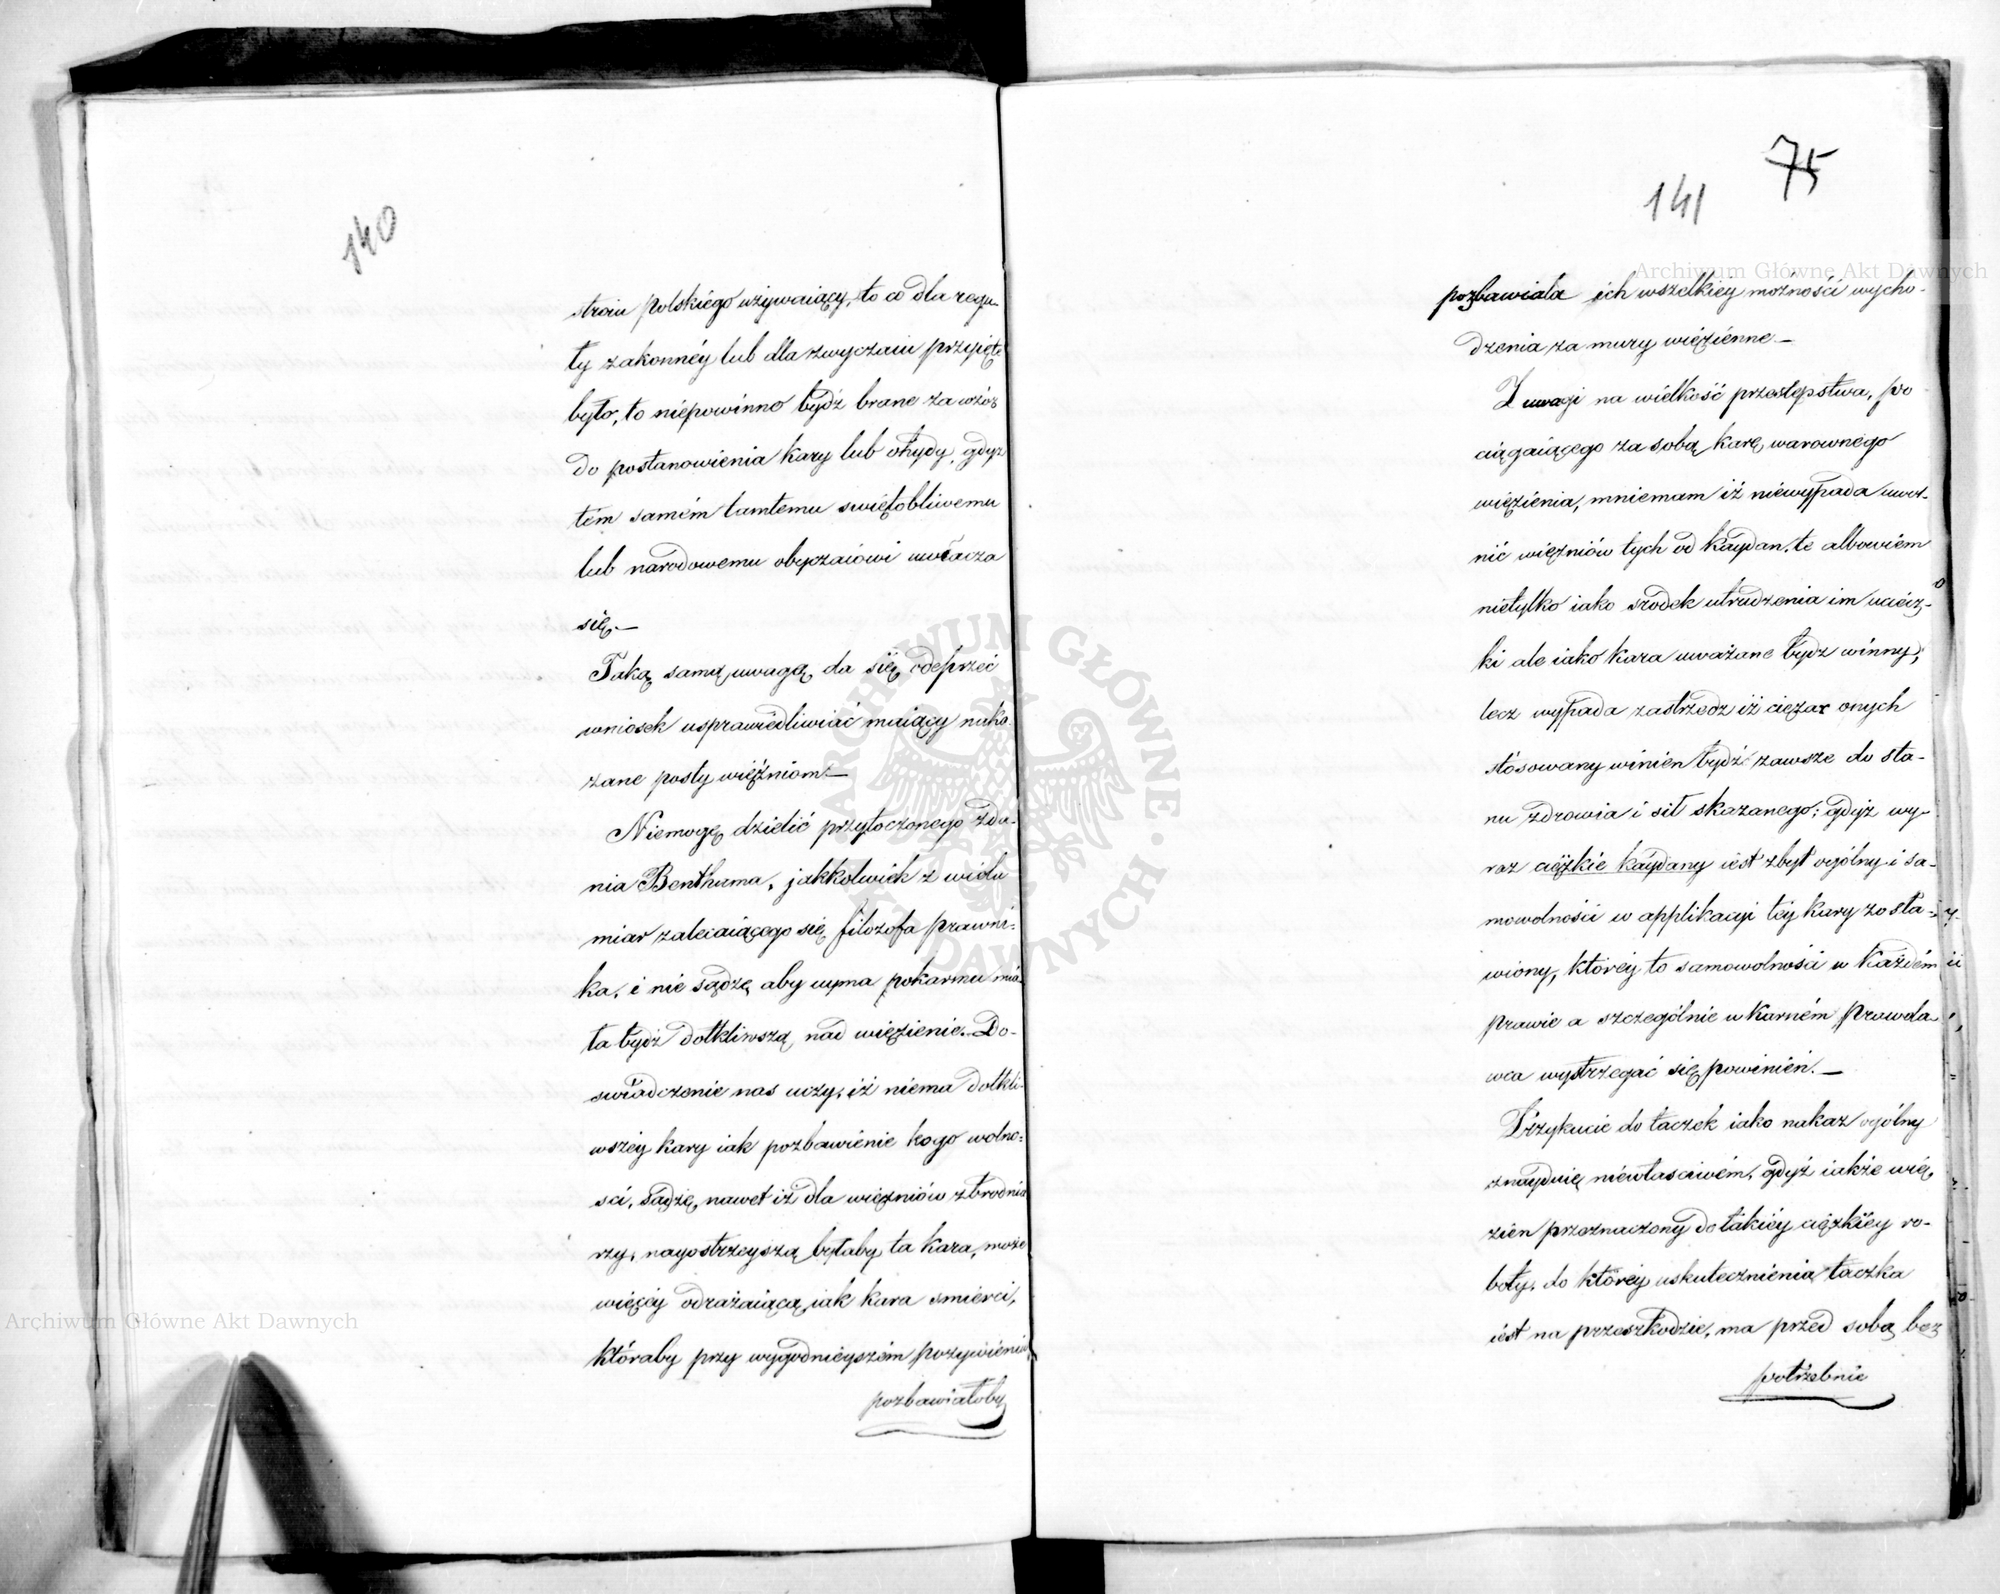 140
stroiu polskiego używaiący, to co dla regu-
ły zakonnéy lub dla zwyczaiu przyięte
było, to niepowinno bydź brane za wzór
do postanowienia kary lub ohydy, gdyż
tém samém tamtemu swiętobliwemu
lub narodowemu obyczaiowi uwłacza
się.—
Taką samą uwagą da się odeprzéć
wniosek usprawiedliwiać maiący naka-
zane posty więźniom.—
Niemogę dzielić przytoczonego zda-
nia Benthama, jakkolwiek z wielu
miar zalecaiącego się filozofa prawni-
ka, i nie sądzę aby uyma pokarmu mia-
ła bydź dotkliwszą nad więzienie. Do-
swiadczenie nas uczy, iż niema dotkli-
wszéy kary iak pozbawienie kogo wolno-
sci, sądzę nawet iż dla więzniów zbrodnia
rzy, nayostrzeyszą byłaby ta kara, może
więcéy odrażaiącą iak kara smierci,
któraby przy wygodnieyszém pożywieniu
pozbawiałaby
75
141
pozbawiała ich wszelkiey możności wycho-
dzenia za mury więziénne.—
Z uwagi na wielkość przestępstwa, po
ciągaiącego za sobą karę warownego
więzienia, mniemam iż niewypada uwol-
nić więzniów tych od kaydan, te albowiém
nietylko iako srodek utrudzenia im uciecz-
ki ale iako kara uważane bydz winny,
lecz wypada zastrzedz iż ciężar onych
stosowany winien bydź zawsze do sta-
nu zdrowia i sił skazanego; gdyż wy-
raz ciężkie kaydany iest zbyt ogólny i sa-
mowolności w applikacyi téy kary zosta-
wiony, któréy to samowolności w każdém
prawie a szczególnie w karném Prawoda
wca wystrzegać się powinién.—
Przykucie do taczek iako nakaz ogólny
znayduię niewłasciwém, gdyż iakże wię
zien przeznaczony do takiéy ciężkiéy ro-
boty, do któréy uskutecznienia taczka
iest na przeszkodzie, ma przed sobą bez
potrzebnie
Archiwum Główne Akt Dawnych
Archiwum Główne Akt Dawnych
ARCHIWUM GŁÓWNE AKT DAWNYCH